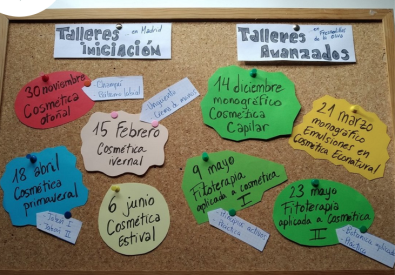 Talleres
en Madrid
INICIACIÓN
Talleres
en
Avanzados
30 noviembre
Cosmética
otoñal
Champú
Bálsamo labial
15 Febrero
Cosmética
ivernal
Ungüento
Crema de manos
18 abril
Cosmética
primaveral
Jabón I
Jabón II
6 junio
Cosmética
Estival
14 diciembre
monográfico
Cosmética
Capilar
21 marzo
monográfico
Emulsiones en
Cosmética Econatural
9 mayo
Fitoterapia
aplicada a cosmética
I
Principios activos
Práctica
23 mayo
Fitoterapia
aplicada a Cosmética
II
Botánica aplicada
Práctica